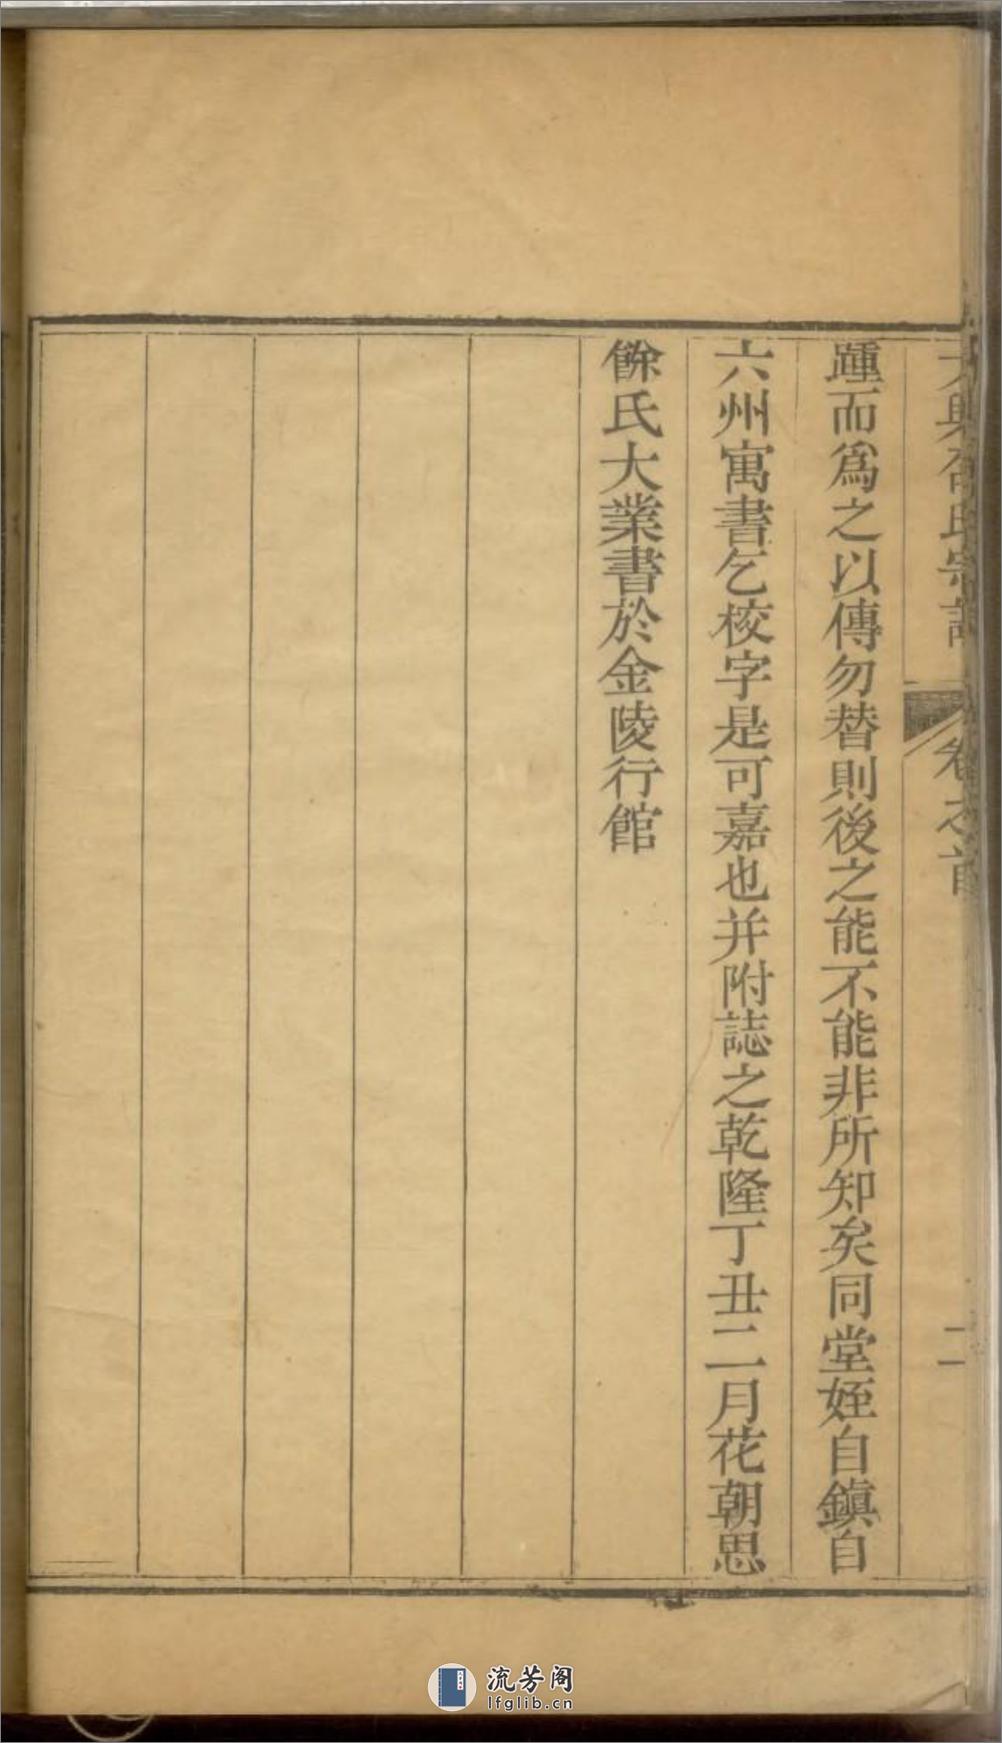 大興邵氏宗譜 卷之首 二
踵而爲之以傳勿替則後之能不能非所知矣同堂姪自鎮自
六州寓書乞校字是可嘉也并附誌之乾隆丁丑二月花朝思
餘氏大業書於金陵行館
流芳阁
lfglib.cn